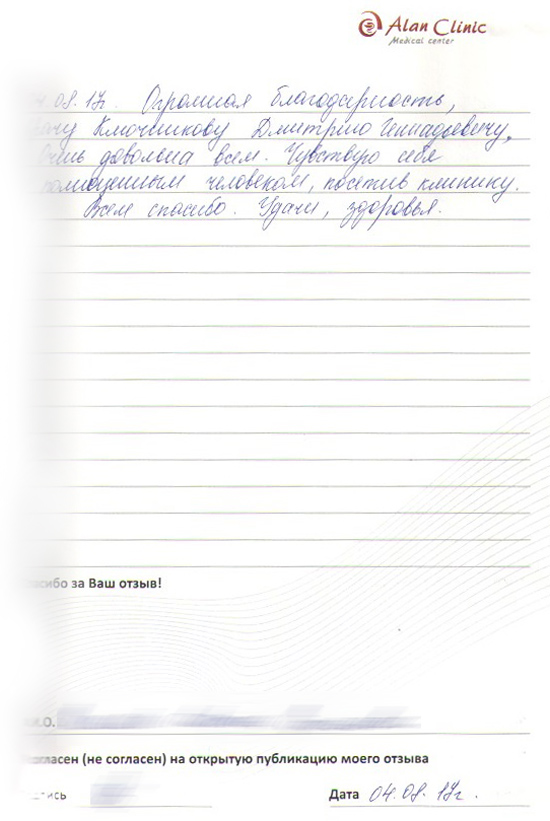 Alan Clinic
Medical center
04.08.17г. Огромная благодарность,
врачу Ключникову Дмитрию Геннадьевичу.
Очень довольна всем. Чувствую себя
полноценным человеком, посетив клинику.
Всем спасибо. Удачи, здоровья.
Спасибо за Ваш отзыв!
И.О.
Согласен (не согласен) на открытую публикацию моего отзыва
пись
Дата 04.08.17г.